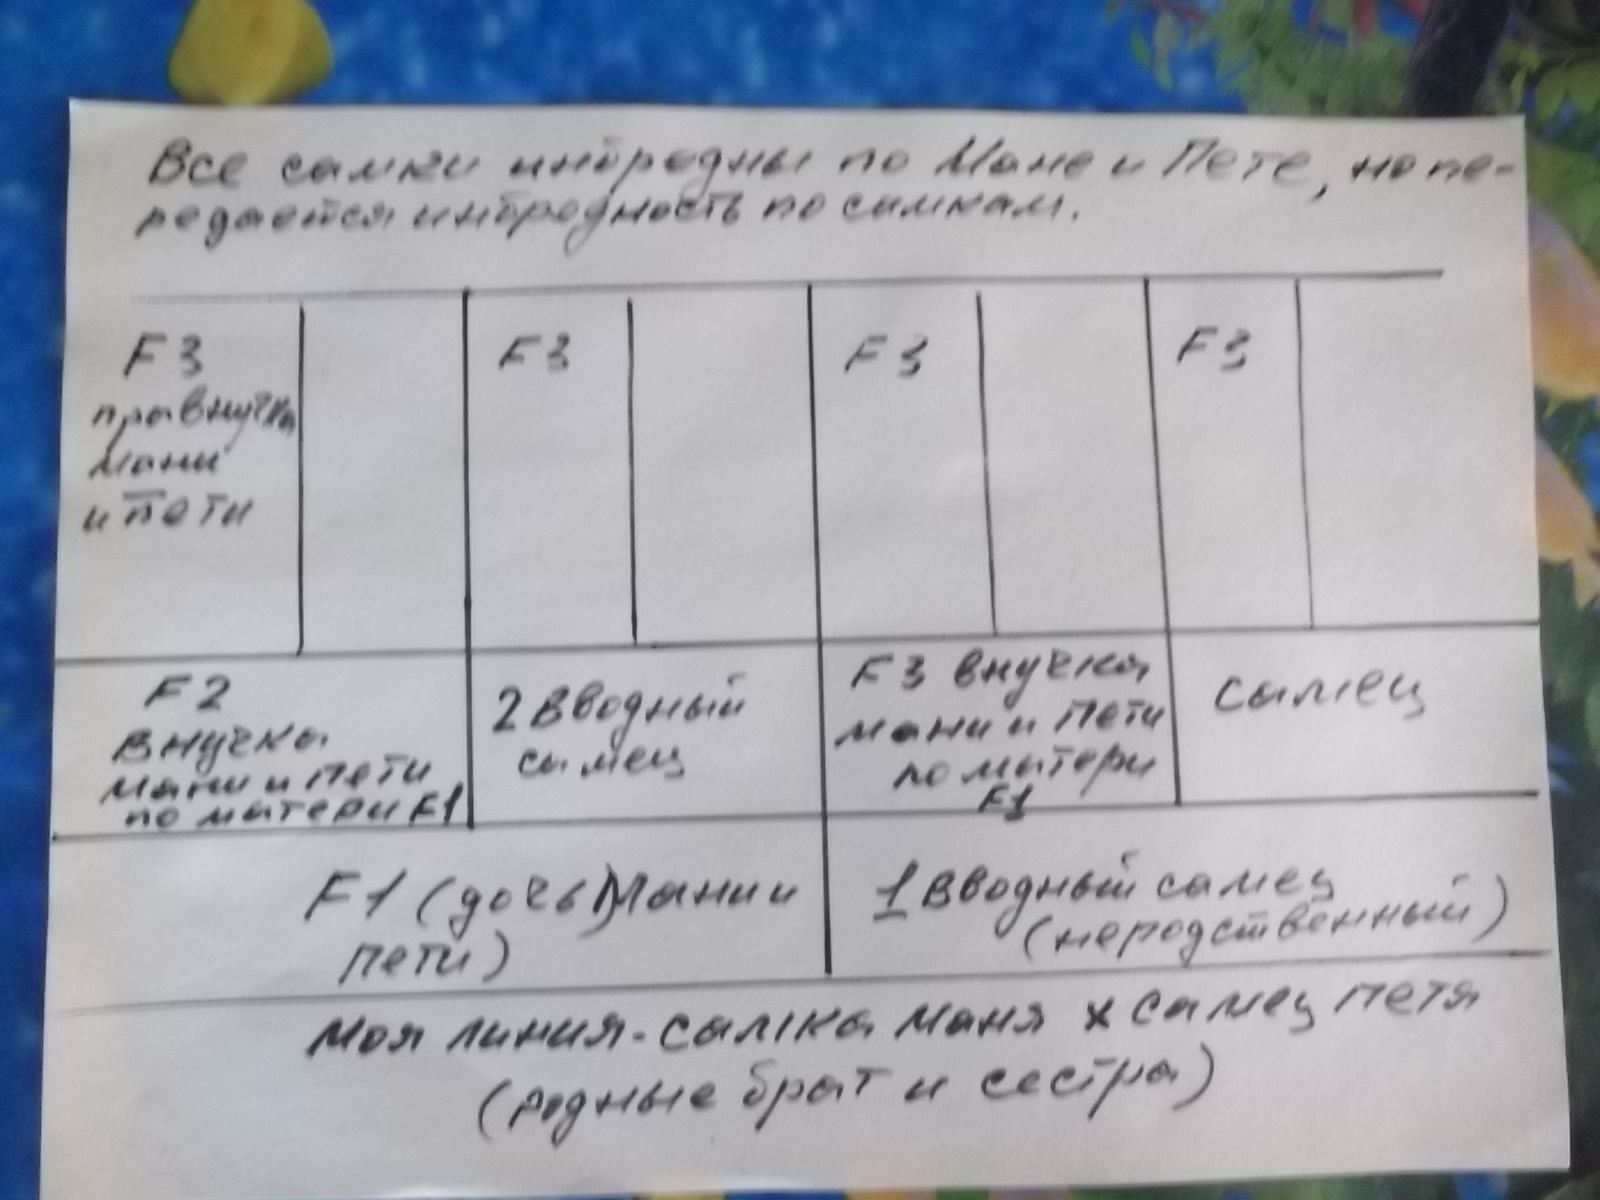 Все самки инбредны по Мане и Пете, но пе-
редаётся инбредность по самкам.
F3
правнучка
Мани
и Пети
F3
F3
F3
F2
внучка
Мани и Пети
по матери F1
2 вводный
самец
F3 внучка
Мани и Пети
по матери
F1
самец
F1 (дочь Мани и
Пети)
1 вводный самец
(неродственный)
Моя линия - самка Маня х самец Петя
(родные брат и сестра)